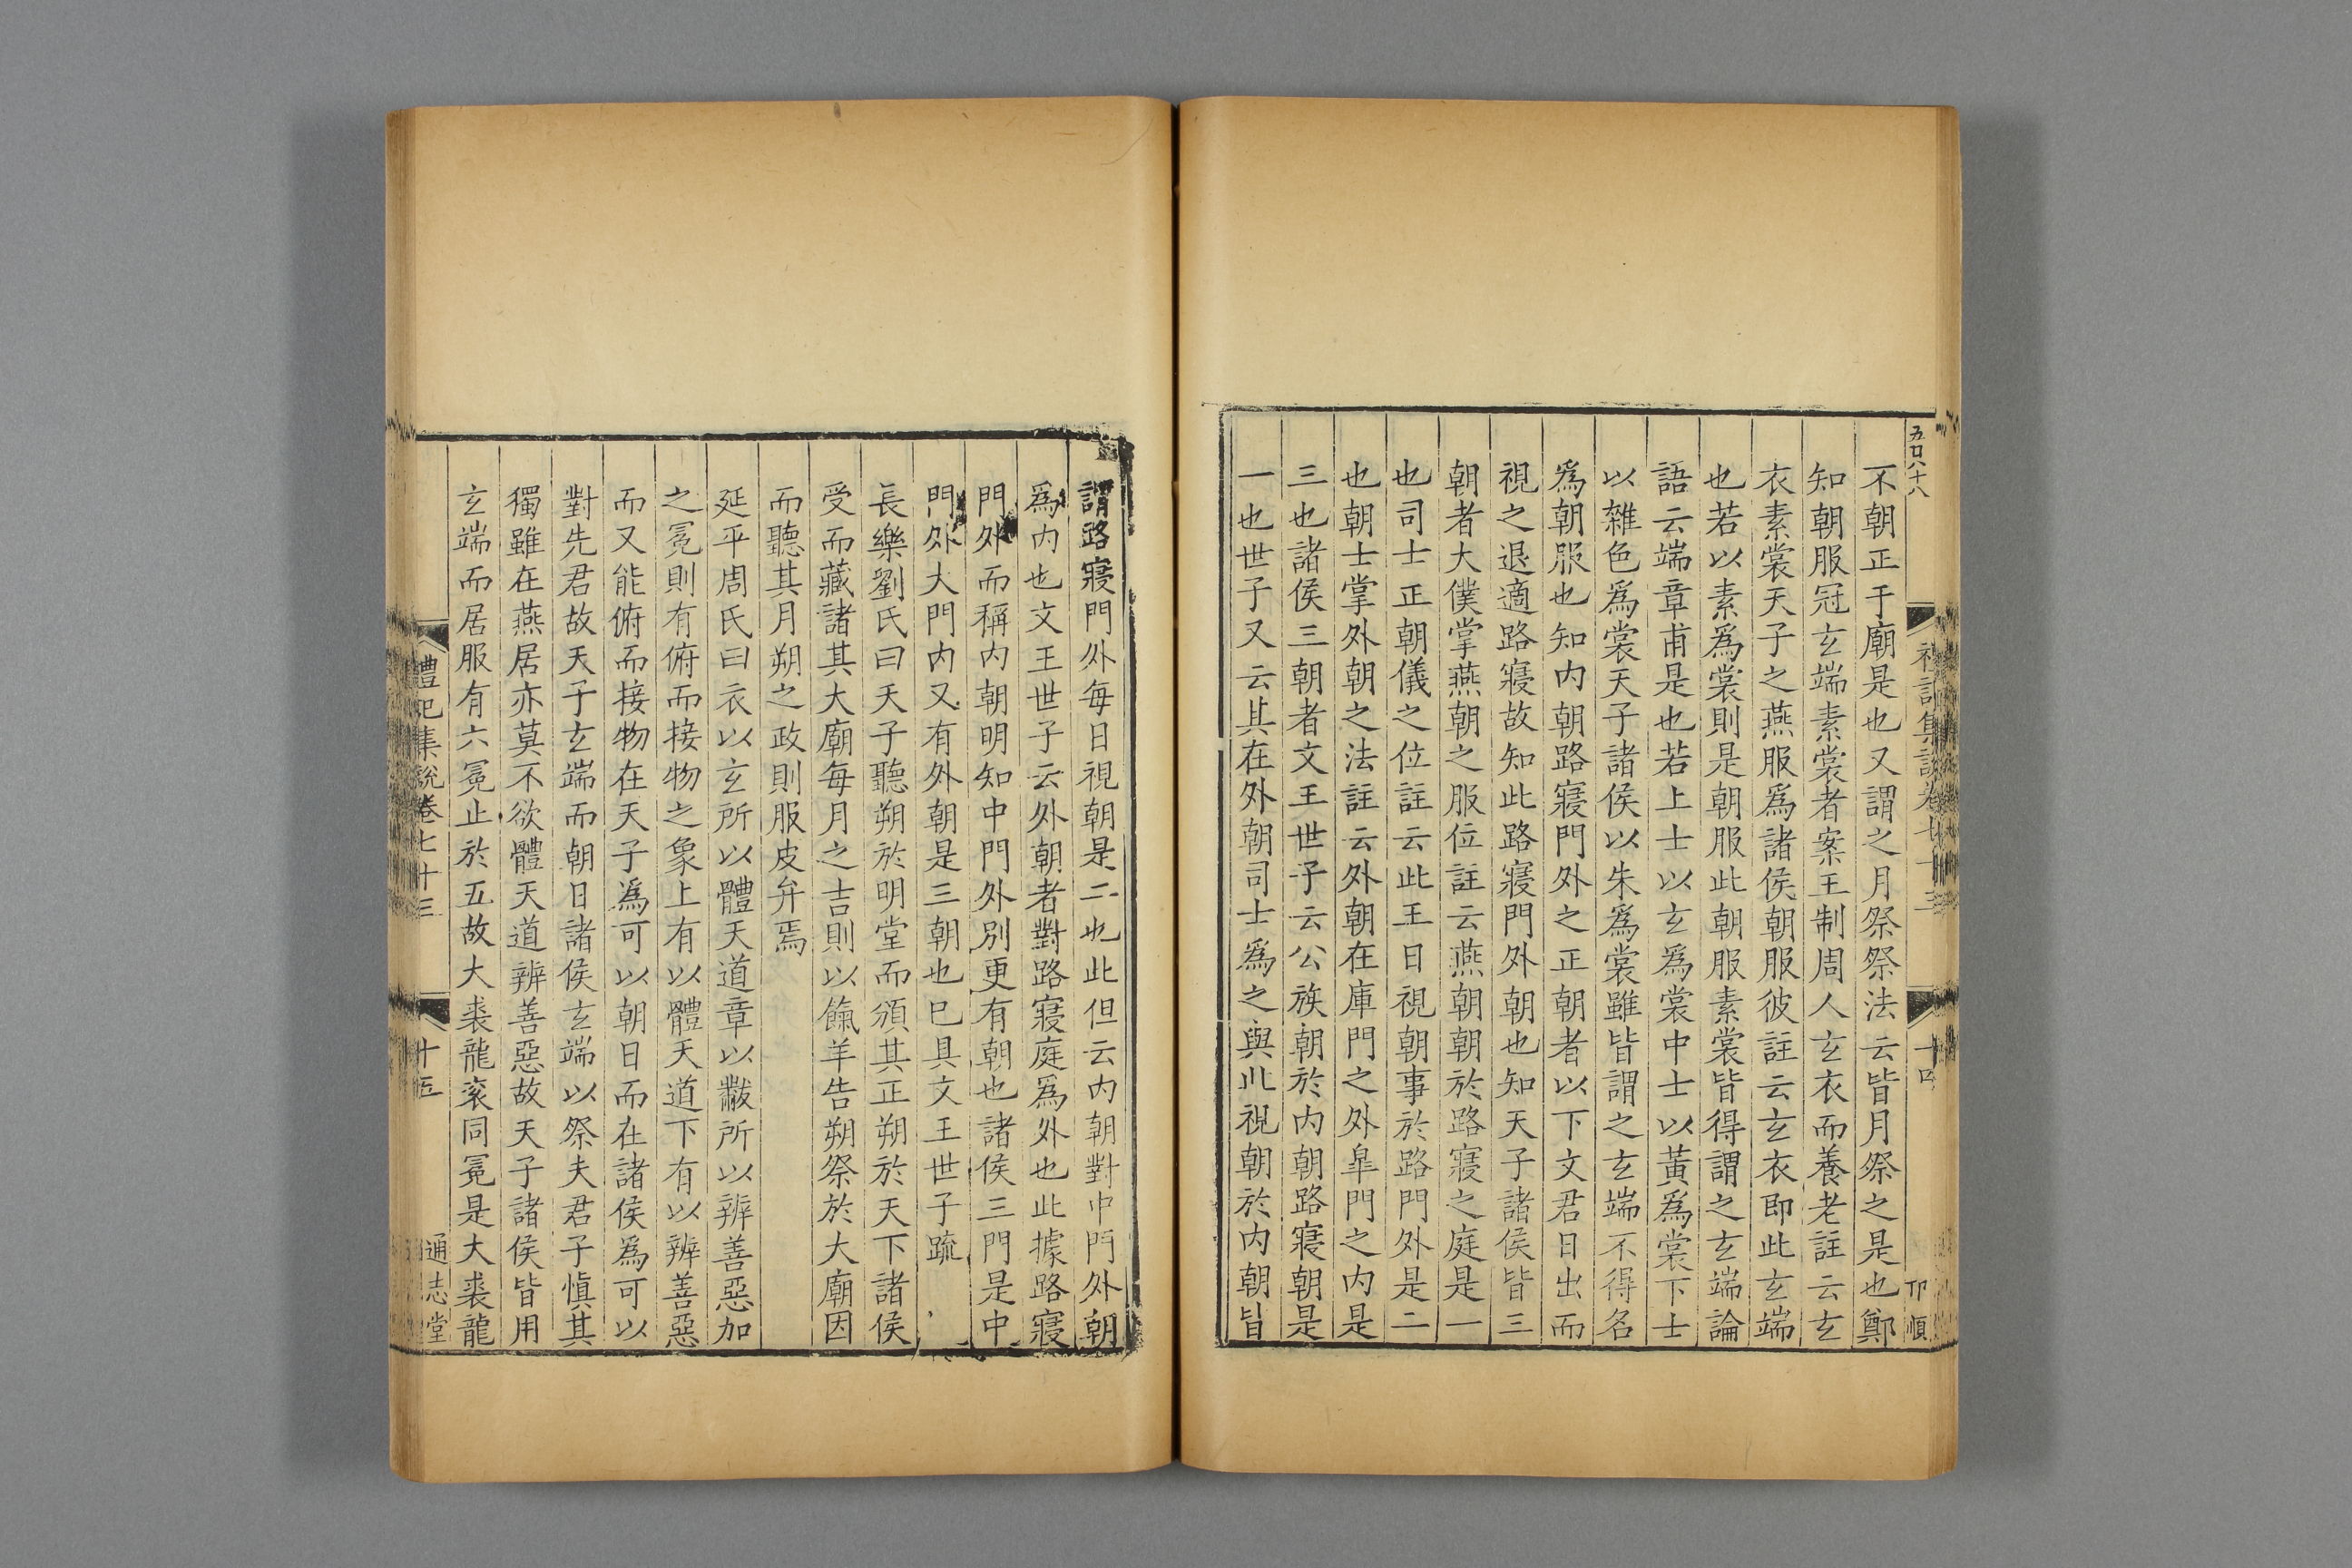 五百八十八
禮記集說卷七十三
十四
卬順
不朝正于廟是也又謂之月祭祭法云皆月祭之是也鄭
知朝服冠玄端素裳者案王制周人玄衣而養老註云玄
衣素裳天子之燕服爲諸侯朝服彼註云玄衣即此玄端
也若以素爲裳則是朝服此朝服素裳皆得謂之玄端論
語云端章甫是也若上士以玄爲裳中士以黃爲裳下士
以雜色爲裳天子諸侯以朱爲裳雖皆謂之玄端不得名
爲朝服也知內朝路寢門外之正朝者以下文君日出而
視之退適路寢故知此路寢門外朝也知天子諸侯皆三
朝者大僕掌燕朝之服位註云燕朝朝於路寢之庭是一
也司士正朝儀之位註云此王日視朝事於路門外是二
也朝士掌外朝之法註云外朝在庫門之外皐門之內是
三也諸侯三朝者文王世子云公族朝於內朝路寢朝是
一也世子又云其在外朝司士爲之與此視朝於內朝皆
謂路寢門外每日視朝是二也此但云內朝對中門外朝
爲內也文王世子云外朝者對路寢庭爲外也此據路寢
門外而稱內朝明知中門外別更有朝也諸侯三門是中
門外大門內又有外朝是三朝也巳具文王世子疏
長樂劉氏曰天子聽朔於明堂而頒其正朔於天下諸侯
受而藏諸其大廟每月之吉則以餼羊告朔祭於大廟因
而聽其月朔之政則服皮弁焉
延平周氏曰衣以玄所以體天道章以黻所以辨善惡加
之冕則有俯而接物之象上有以體天道下有以辨善惡
而又能俯而接物在天子爲可以朝日而在諸侯爲可以
對先君故天子玄端而朝日諸侯玄端以祭夫君子愼其
獨雖在燕居亦莫不欲體天道辨善惡故天子諸侯皆用
玄端而居服有六冕止於五故大裘龍衮同冕是大裘龍
禮記集說卷七十三
十五
通志堂